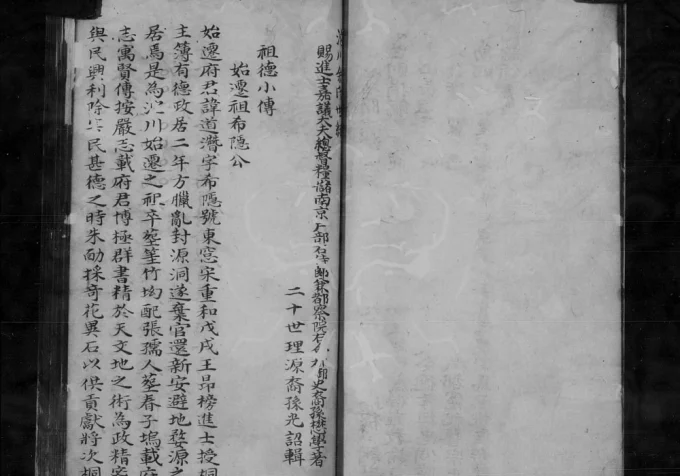 賜進士嘉議大夫總督糧儲南京戶部右侍郎兼都察院右僉都御史裔孫懋學著
二十世理源裔孫光詔輯
祖德小傳
始遷祖希隱公
始遷府君諱道潛字希隱號東窓宋重和戊戌王昂榜進士授桐
主簿有德政居二年方臘亂封源洞遂棄官還新安避地婺源之
居焉是為沱川始遷之祖卒塟篁竹坳配張孺人塟春子塢載府
志寓賢傳按嚴志載府君博極群書精於天文地之術為政精密
與民興利除害民甚德之時朱勔採奇花異石以供貢獻將次桐